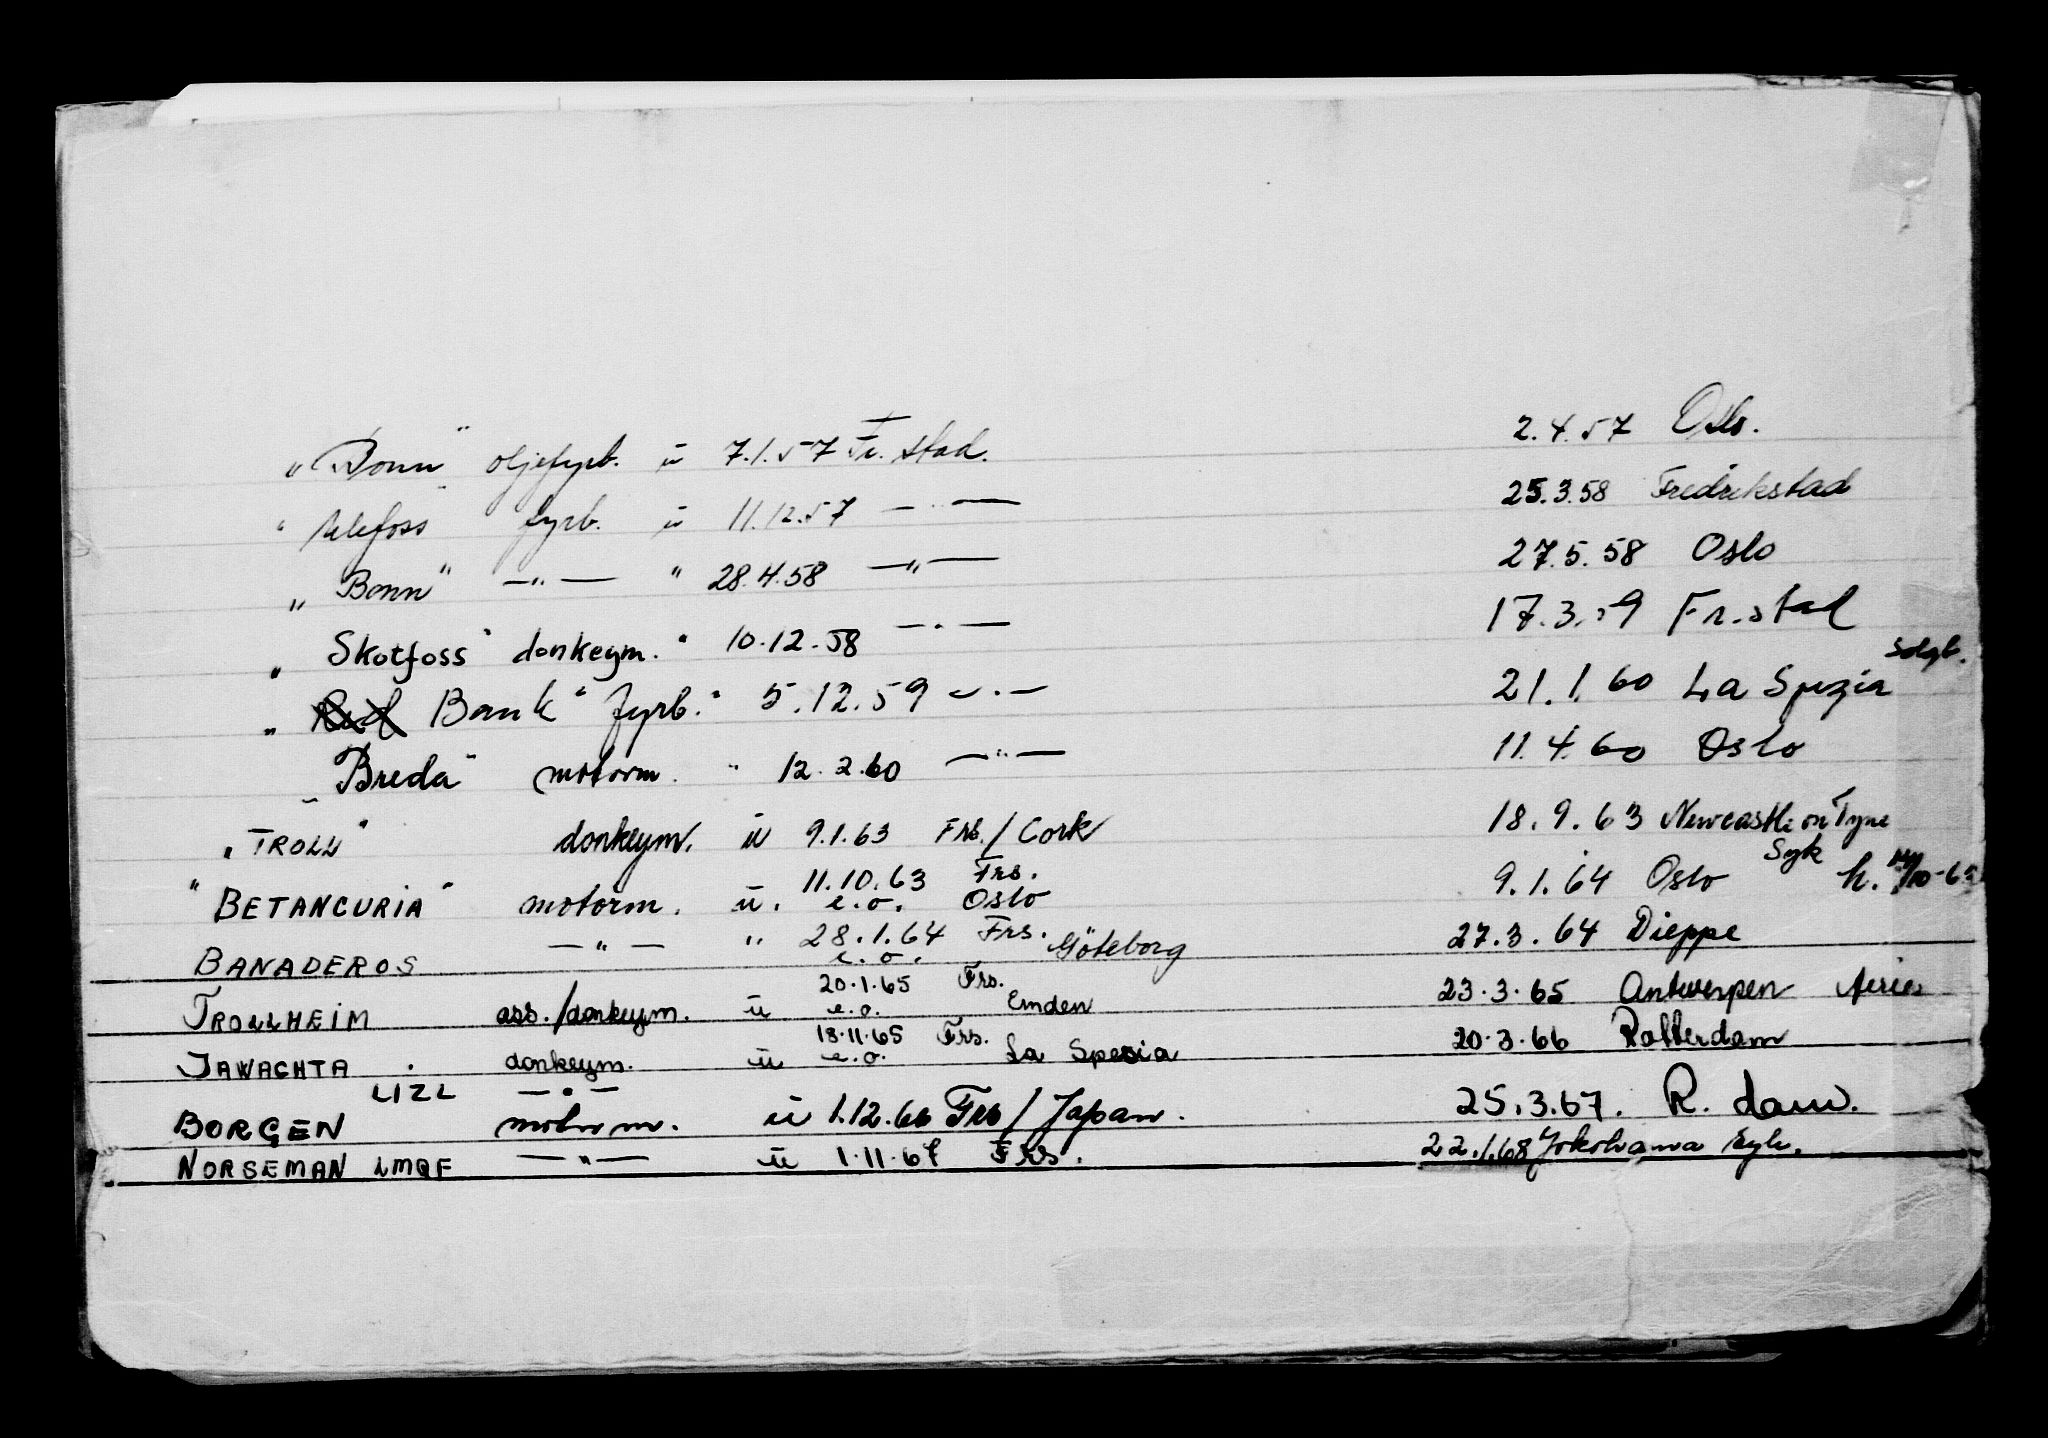 "Bonn" oljefyrb. u 7.1.57 Fr.stad. 2.4.57 Oslo.
"Ulefoss" fyrb. u 11.12.57 — " — 25.3.58 Fredrikstad
"Bonn" — " — " 28.4.58 — " — 27.5.58 Oslo
"Skotfoss" donkeym. " 10.12.58 — " — 17.3.59 Fr.stad
" Bank" fyrb. " 5.12.59 — " — 21.1.60 La Spezia Solgt.
"Breda" motorm. " 12.2.60 — " — 11.4.60 Oslo
"TROLL" donkeym. u 9.1.63 Frs./Cork 18.9.63 Newcastle on Tyne
"BETANCURIA" motorm. u. 11.10.63 Frs. e.o. Oslo 9.1.64 Oslo Syk
BANADEROS — " — " 28.1.64 Frs. e.o. Göteborg 27.3.64 Dieppe
TROLLHEIM ass./donkeym. u 20.1.65 Frs. e.o. Emden 23.3.65 Antwerpen ferie
JAWACHTA donkeym. u 18.11.65 Frs. e.o. La Spezia 20.3.66 Rotterdam
BORGEN LIZL — " — motorm. u 1.12.66 Frs/Japan. 25.3.67. R.dam.
NORSEMAN LMQF — " — u 1.11.67 Frs. 22.1.68 Yokohama syk.